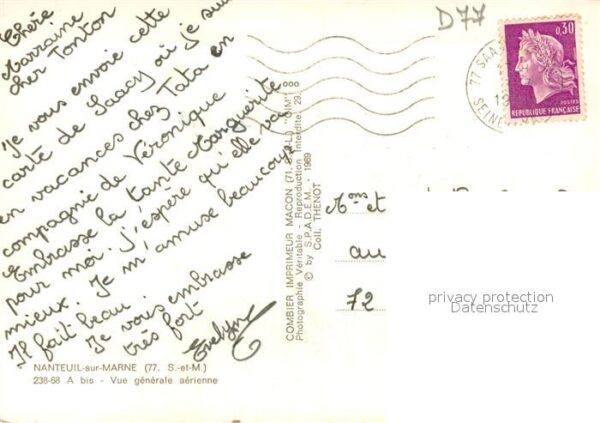 Chère
Marraine
cher Tonton
Je vous envoie cette
carte de Saacy où je suis
en vacances chez Tata en
compagnie de Véronique
Embrasse la tante Marguerite
pour moi. J'espère qu'elle va
mieux. Je m'amuse beaucoup
Il fait beau.
Je vous embrasse
très fort
Evelyne
NANTEUIL-sur-MARNE (77. S.-et-M.)
238-68 A bis - Vue générale aérienne
COMBIER IMPRIMEUR MACON (71. S.-et-L.) "CIM"
Photographie Véritable - Reproduction Interdite 29.
© by S.P.A.D.E.M. - 1969
Coll. THENOT
D77
0,30
POSTES
REPUBLIQUE FRANÇAISE
77 SAA
SEINE
et
au
72
privacy protection
Datenschutz